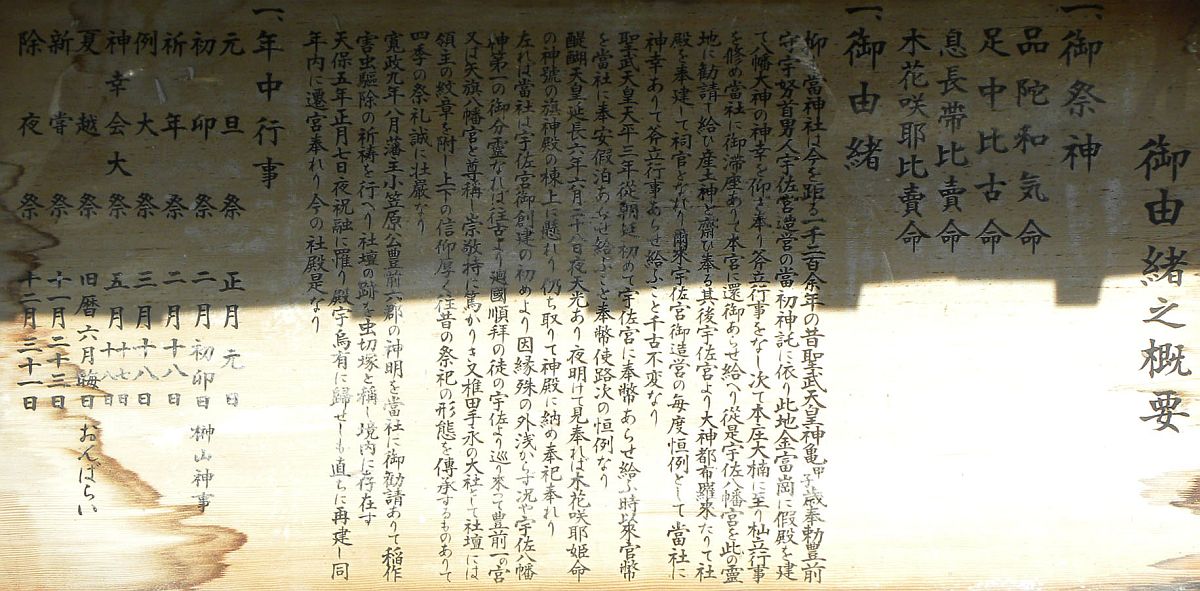 御由緒之概要
一、御祭神
品陀和気命
足中比古命
息長帯比賣命
木花咲耶比賣命
一、御由緒
抑〻當神社は今を距る一千二百余年の昔聖武天皇神亀甲子歳奉勅豊前
守宇努首男人宇佐宮造営の當初神託に依り此地金富崗に假殿を建
て八幡大神の神幸を仰ぎ奉り斧立行事をなし次て本庄大楠に至り杣立行事
を修め當社に御滞座ありて本宮に還御あらせ給へり從是宇佐八幡宮を此の霊
地に勧請し給ひ産土神と齋ひ奉る其後宇佐宮より大神都布羅來たりて社
殿を奉建して祠官となれり爾來宇佐宮御造営の毎度恒例として當社に
神幸ありて斧立行事あらせ給ふこと千古不変なり
聖武天皇天平三年從朝廷初めて宇佐宮に奉幣あらせ給ふ時以來官幣
を當社に奉安假泊あらせ給ふこと奉幣使路次の恒例なり
醍醐天皇延長六年六月二十八日夜天光あり夜明けて見奉れば木花咲耶姫命
の神號の旗神殿の棟上に懸れり仍ち取りて神殿に納め奉祀奉れり
左れば當社は宇佐宮御創建の初めより因縁殊の外浅からず況や宇佐八幡
神第一の御分霊なれば往古より廻國順拜の徒の宇佐より巡り来って豊前一の宮
又は矢旗八幡宮と尊稱し崇敬特に篤かりき又椎田手永の大社として社壇には
領主の紋章を附し上下の信仰厚く往昔の祭祀の形態を傳承するものありて
四季の祭礼誠に壮嚴なり
寛政九年八月藩主小笠原公豊前六郡の神明を當社に御勧請ありて稲作
害虫驅除の祈祷を行へり社壇の跡を虫切塚と稱し境内に存在す
天保五年正月七日夜祝融に罹り殿宇烏有に歸せしも直ちに再建し同
年内に遷宮奉れり今の社殿是なり
一、年中行事
元旦祭 正月元日
初卯祭 二月初卯日 榊山神事
祈年祭 二月十八日
例大祭 三月十八日
神幸会大祭 五月十七日十八日
夏越祭 旧暦六月晦日 おんばらい
新嘗祭 十一月二十三日
除夜祭 十二月三十一日